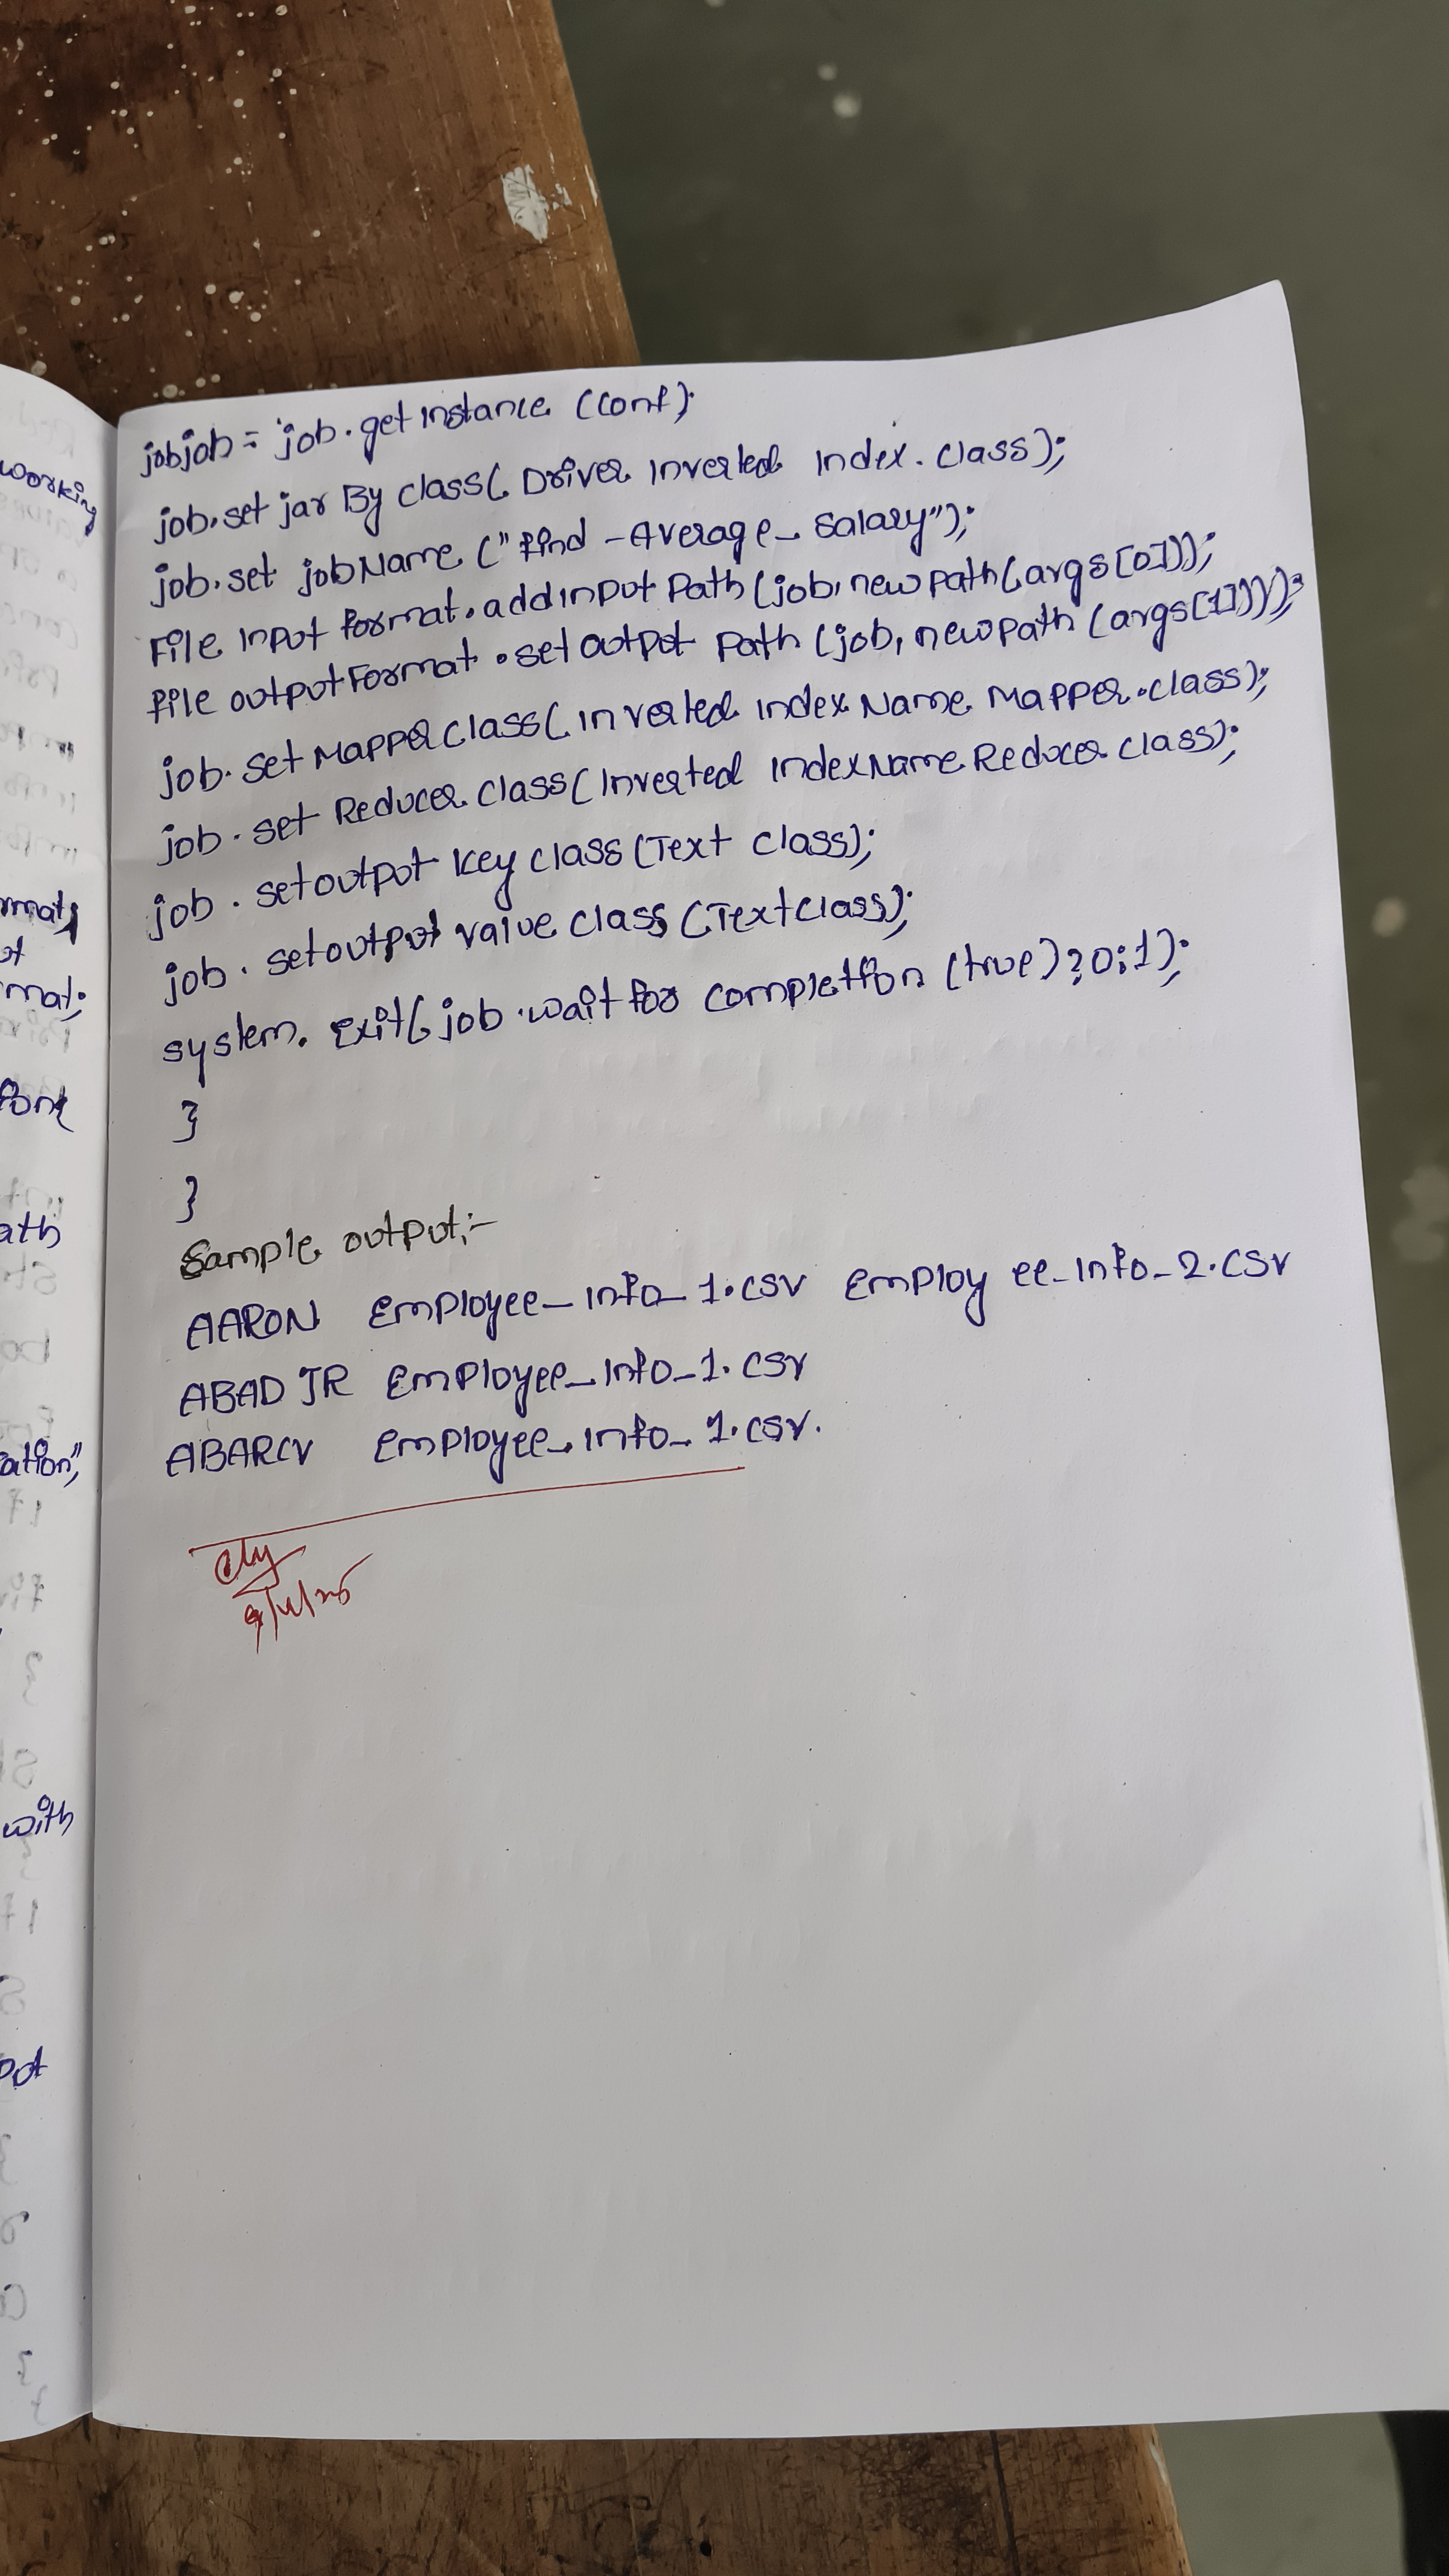 working
rmat;
ot
mat;
ath
ation",
with
jobjob = job.getInstance (conf);
job.set jar By class( Driver Inverted Index.class);
job.set jobName ("Find -Average_ Salary");
File Input format.addinput Path (job, newpath(args[0]));
File outputFormat.setoutput path (job, newpath (args[1])));
job. set Mapperclass( inverted index Name Mapper.class);
job. set Reducer class( Inverted IndexName Reducer class);
job. setoutput key class (Text class);
job. setoutput value class (Text class);
system. exit( job.wait for completion (true)?0:1);
}
}
Sample output:-
AARON Employee_info_1.csv Employ ee_info_2.csv
ABAD JR Employee_Info_1.csv
ABARCV Employee_info_1.csv.